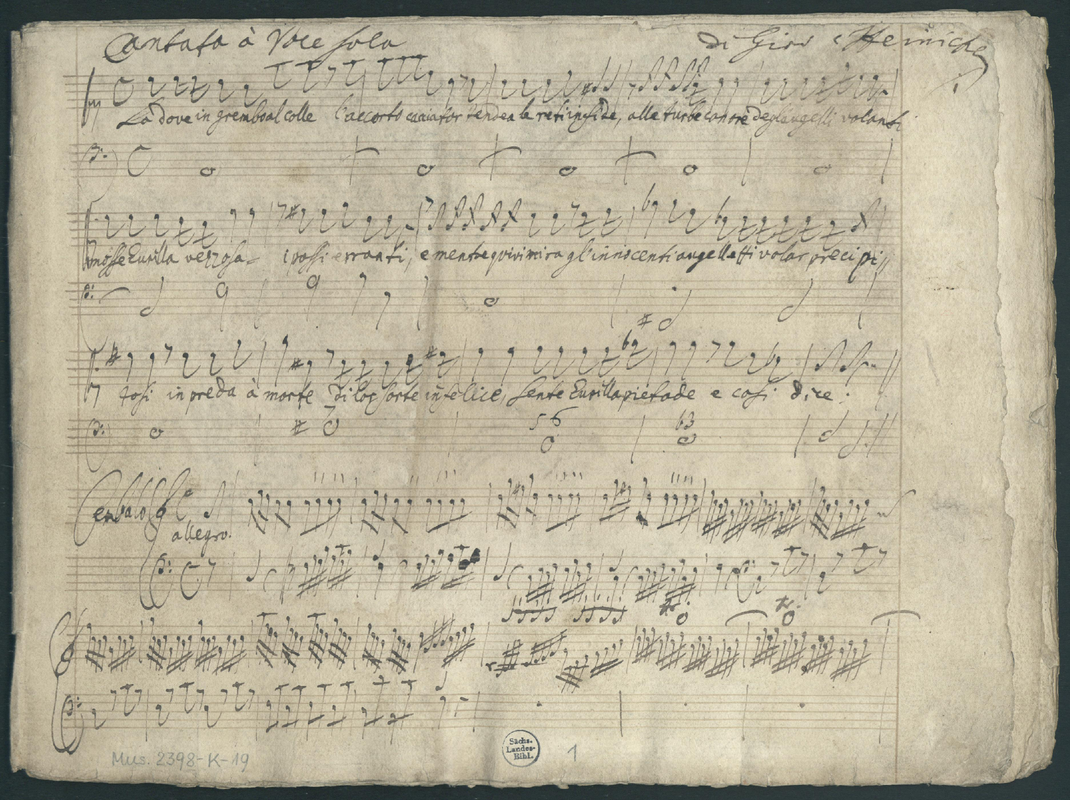 Cantata à Voce sola di Giov: Heinichen
La dove in grembo al colle l'accorto cacciator tendea le reti infide, alle turbe canore degl'augelli volanti
mosse Eurilla vezzosa i passi erranti, e mentre quivi mira gl'innocenti augelletti volar precipi,,
tosi in preda à morte di lor sorte infelice, sente Eurilla pietade e cosi dice:
Cembalo
allegro.
tr: tr:
Mus. 2398-K-19
Sächs.
Landes-
Bibl.
1